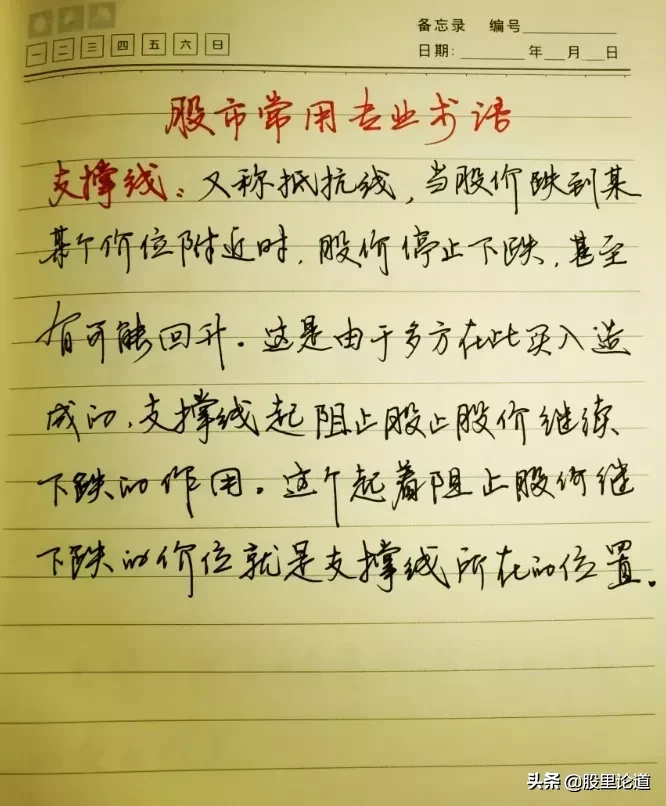 备忘录 编号
一 二 三 四 五 六 日
日期: 年 月 日
股市常用专业术语
支撑线：又称抵抗线，当股价跌到某
某个价位附近时，股价停止下跌，甚至
有可能回升。这是由于多方在此买入造
成的，支撑线起阻止股止股价继续
下跌的作用。这个起着阻止股价继
下跌的价位就是支撑线所在的位置。
头条 @股里论道